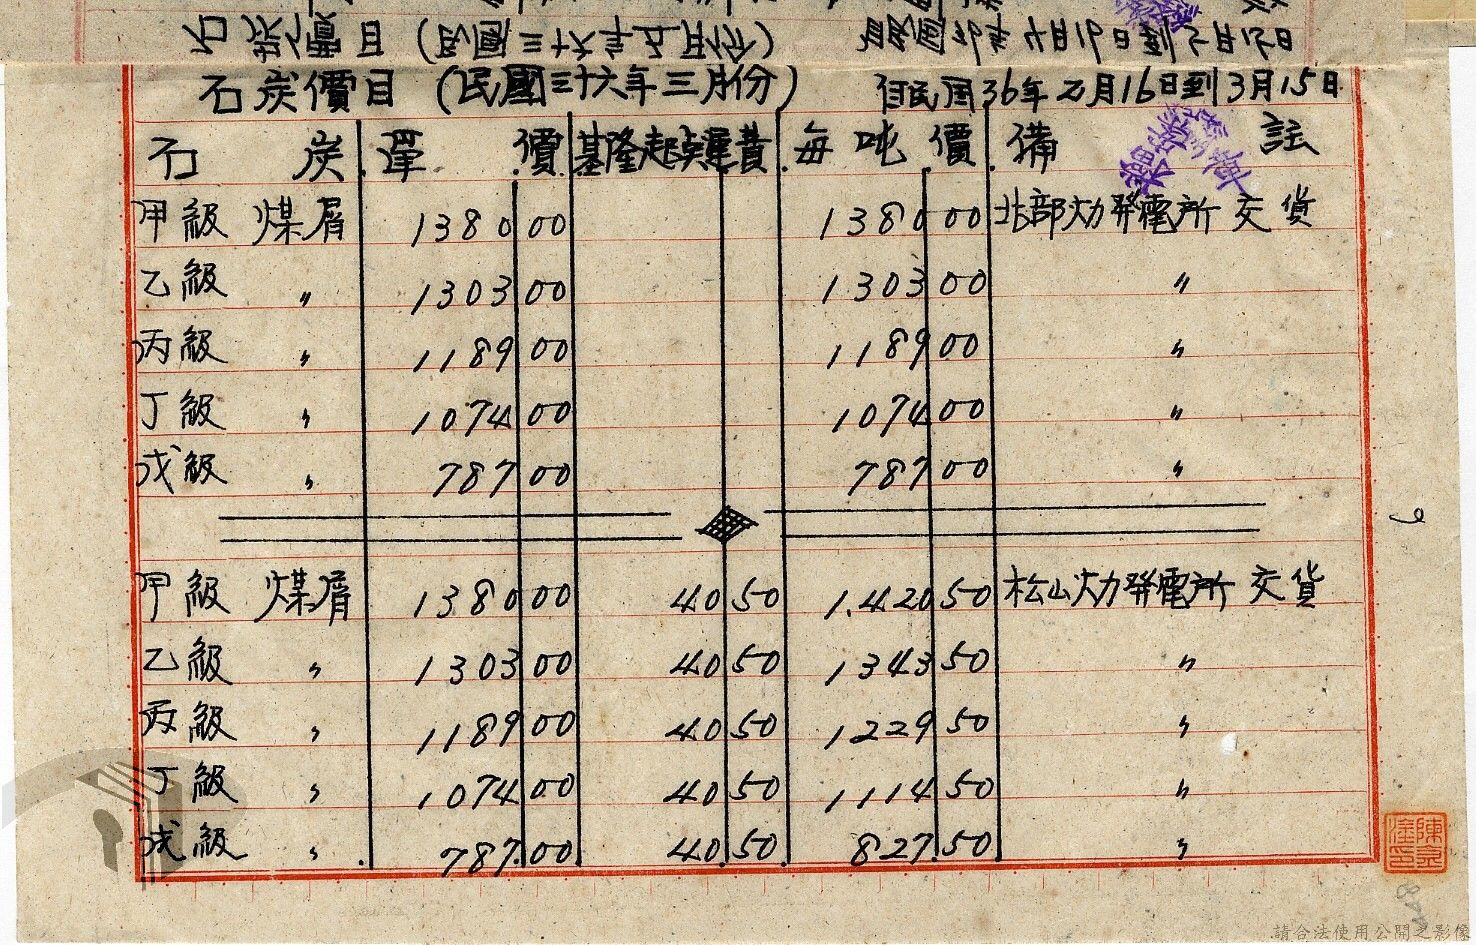 石炭價目（民國三十六年五月份）
石炭價目（民國三十六年三月份） 自民国36年2月16日到3月15日
石炭 單價 基隆起卸運費 每吨價 備註
甲級煤屑 1380 00 1380 00 北部火力發電所交貨
乙級 〃 1303 00 1303 00 〃
丙級 〃 1189 00 1189 00 〃
丁級 〃 1074 00 1074 00 〃
戊級 〃 787 00 787 00 〃
甲級煤屑 1380 00 40 50 1.420 50 松山火力發電所交貨
乙級 〃 1303 00 40 50 1343 50 〃
丙級 〃 1189 00 40 50 1229 50 〃
丁級 〃 1074 00 40 50 1114 50 〃
戊級 〃 787.00 40.50 827.50 〃
請合法使用公開之影像